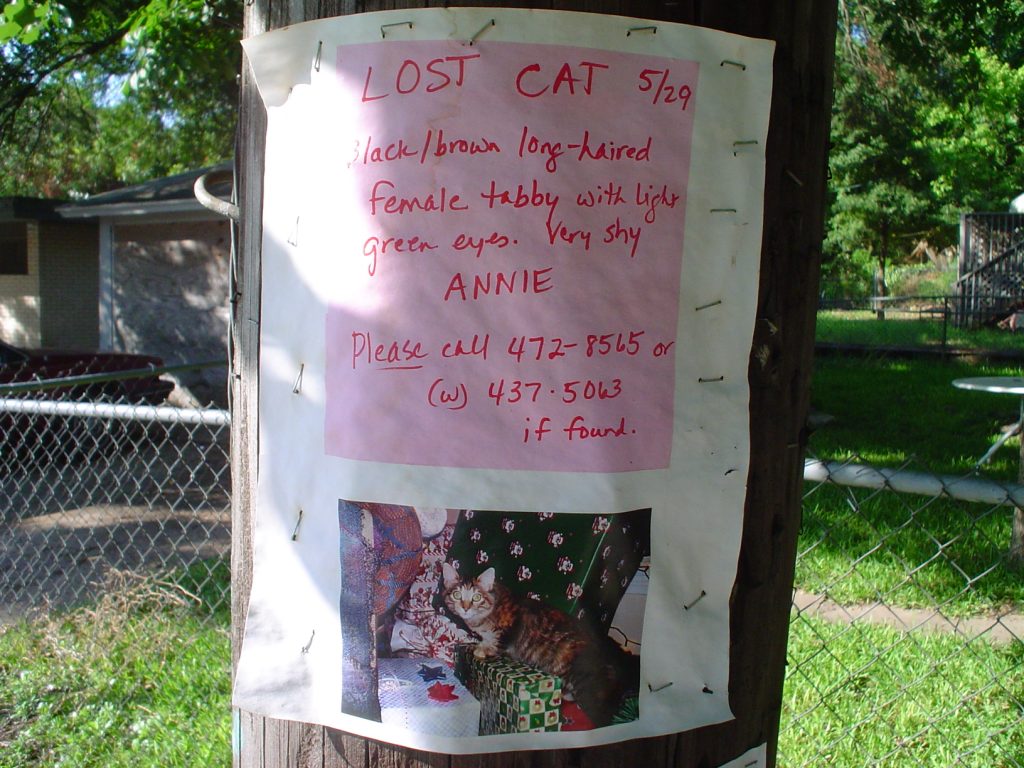 LOST CAT 5/29
Black/brown long-haired
female tabby with light
green eyes. Very shy
ANNIE
Please call 472-8565 or
(w) 437-5063
if found.